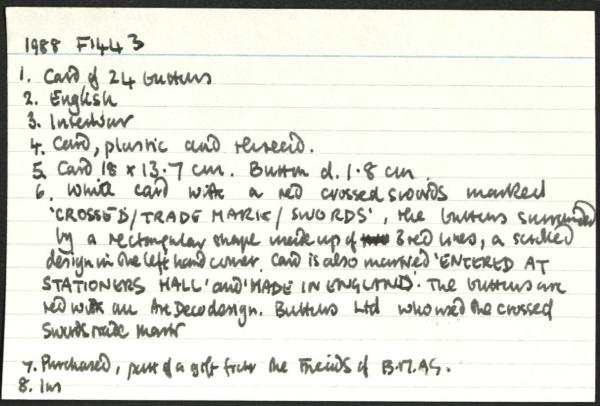 1988 F1443
1. Card of 24 buttons
2. English
3. Interwar
4. Card, plastic and thread.
5. Card 18 x 13.7 cm. Button d. 1.8 cm.
6. White card with a red crossed swords marked
'CROSSED/TRADE MARK/SWORDS', the buttons surrounded
by a rectangular shape made up of 3 red lines, a scrolled
design in the left hand corner. Card is also marked 'ENTERED AT
STATIONERS HALL' and 'MADE IN ENGLAND'. The buttons are
red with an Art Deco design. Buttons Ltd who used the crossed
swords trade mark
7. Purchased, part of a gift from the Friends of B.M.AG.
8. Im